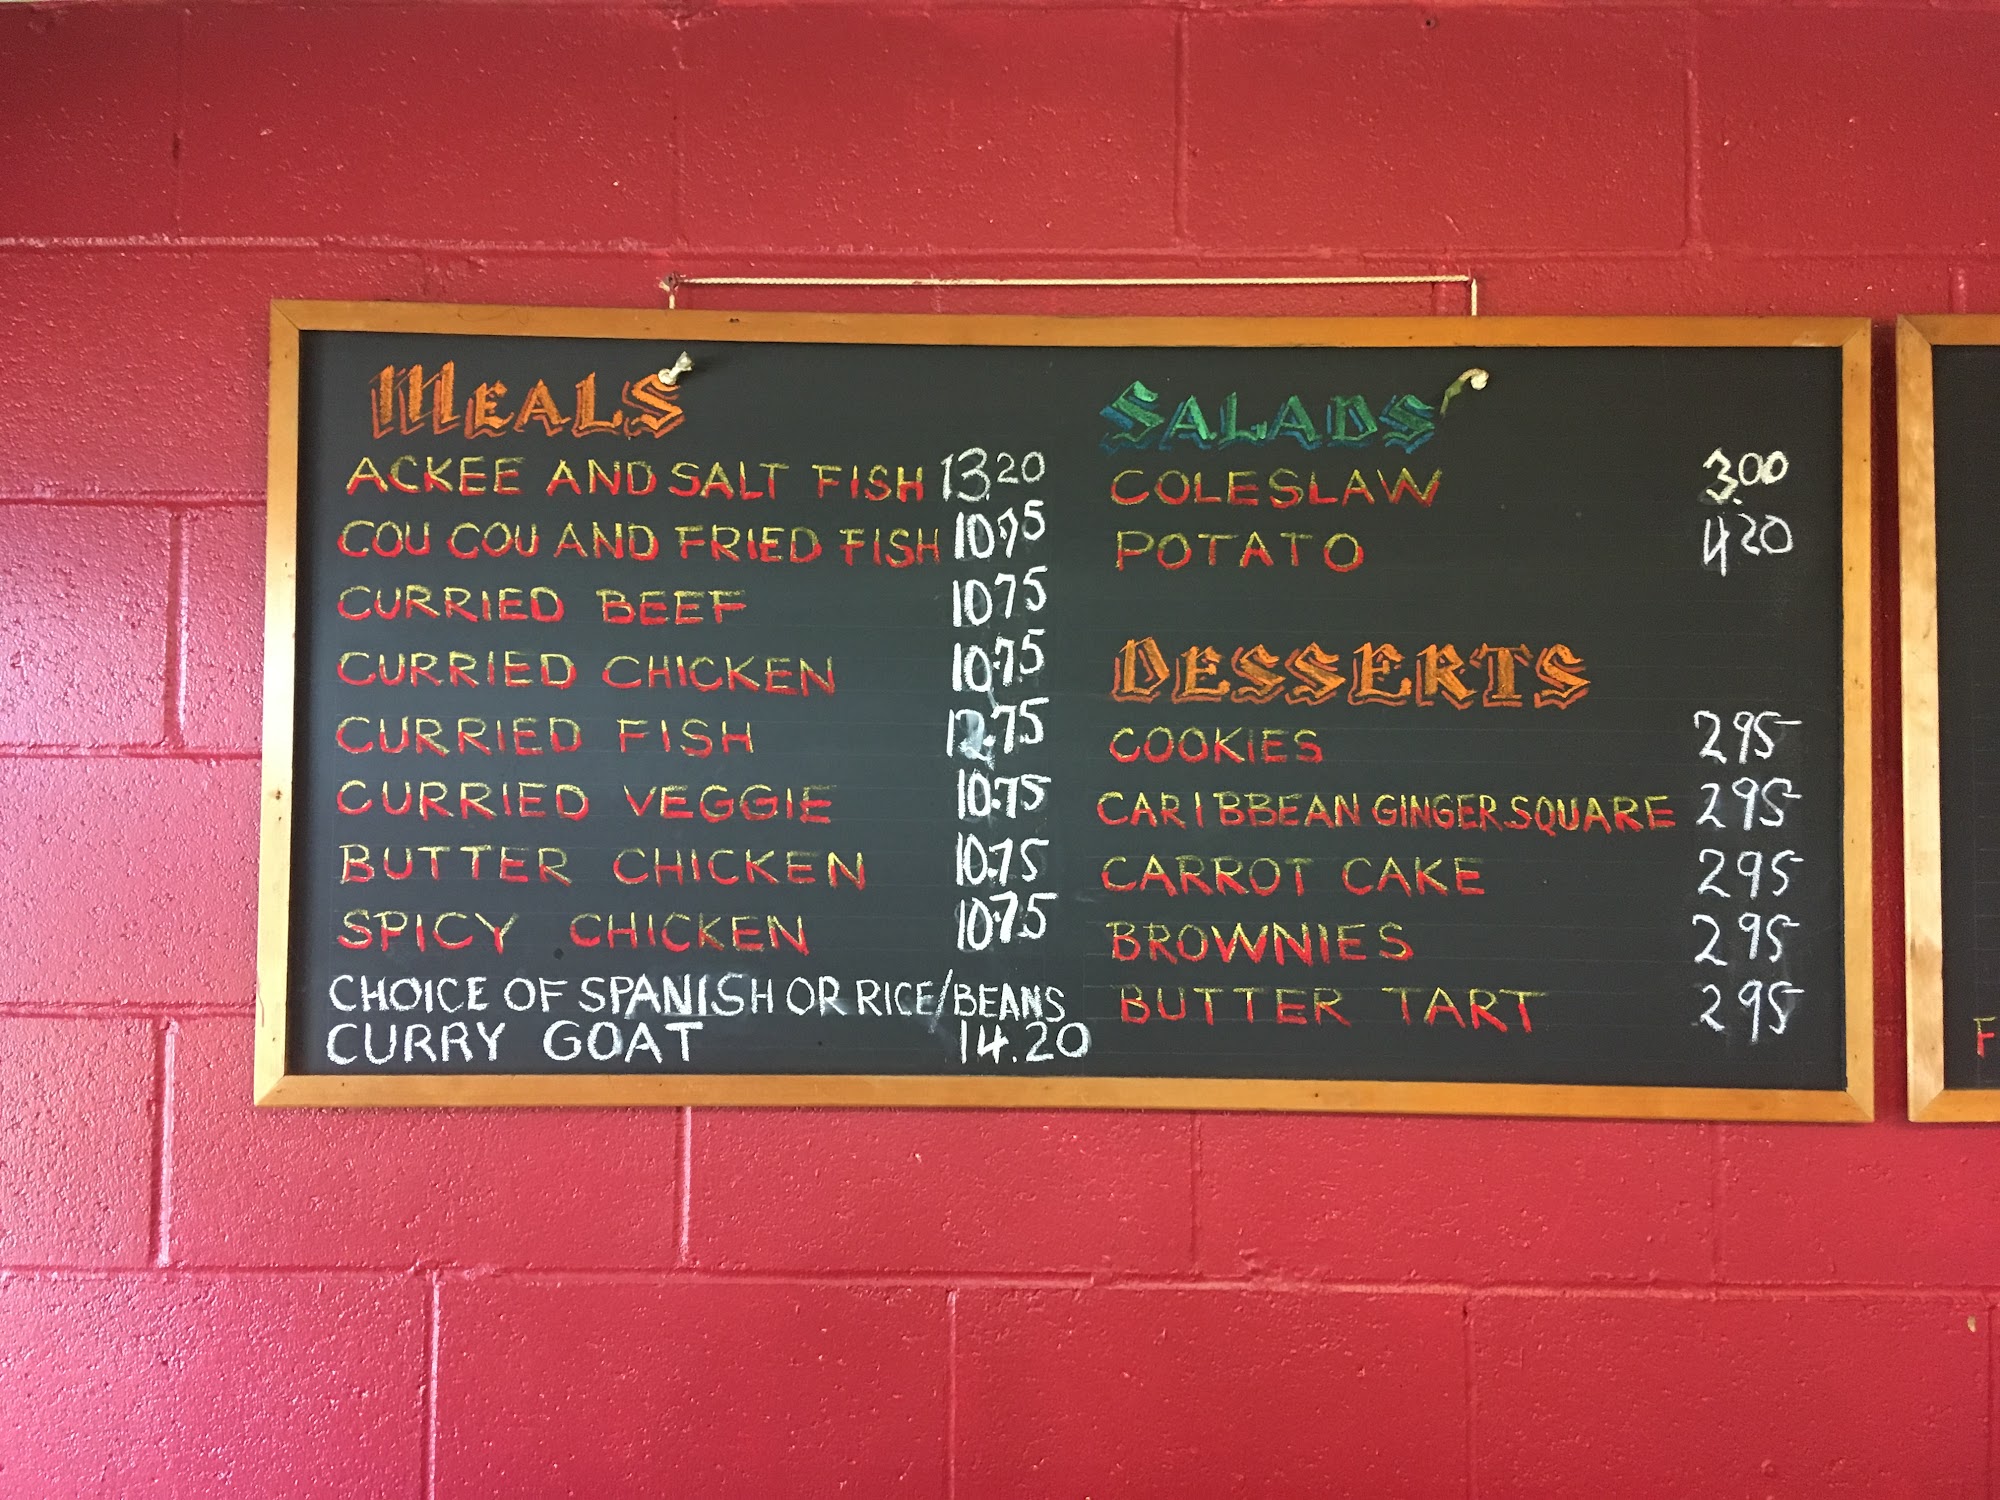 MEALS
ACKEE AND SALT FISH 13.20
COU COU AND FRIED FISH 10.75
CURRIED BEEF 10.75
CURRIED CHICKEN 10.75
CURRIED FISH 12.75
CURRIED VEGGIE 10.75
BUTTER CHICKEN 10.75
SPICY CHICKEN 10.75
CHOICE OF SPANISH OR RICE/BEANS
CURRY GOAT 14.20
SALADS
COLESLAW 3.00
POTATO 4.20
DESSERTS
COOKIES 2.95
CARIBBEAN GINGER SQUARE 2.95
CARROT CAKE 2.95
BROWNIES 2.95
BUTTER TART 2.95
F